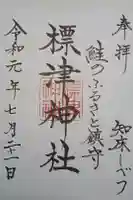 奉拝
知床しべつ
鮭のふるさと鎮守
標津神社
令和元年七月二十一日